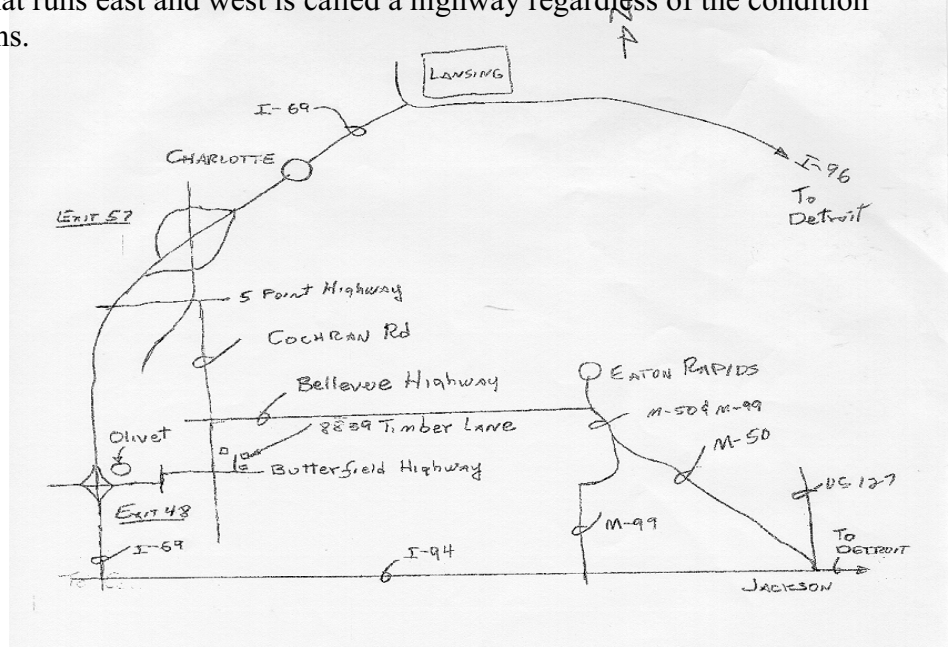 at runs east and west is called a highway regardless of the condition
ns.
LANSING
I-69
CHARLOTTE
I-96
To
Detroit
EXIT 57
5 Point Highway
COCHRAN Rd
EATON RAPIDS
Bellevue Highway
M-50 & M-99
8859 Timber LANE
M-50
Olivet
Butterfield Highway
US 127
EXIT 48
M-99
I-69
I-94
To
DETROIT
JACKSON